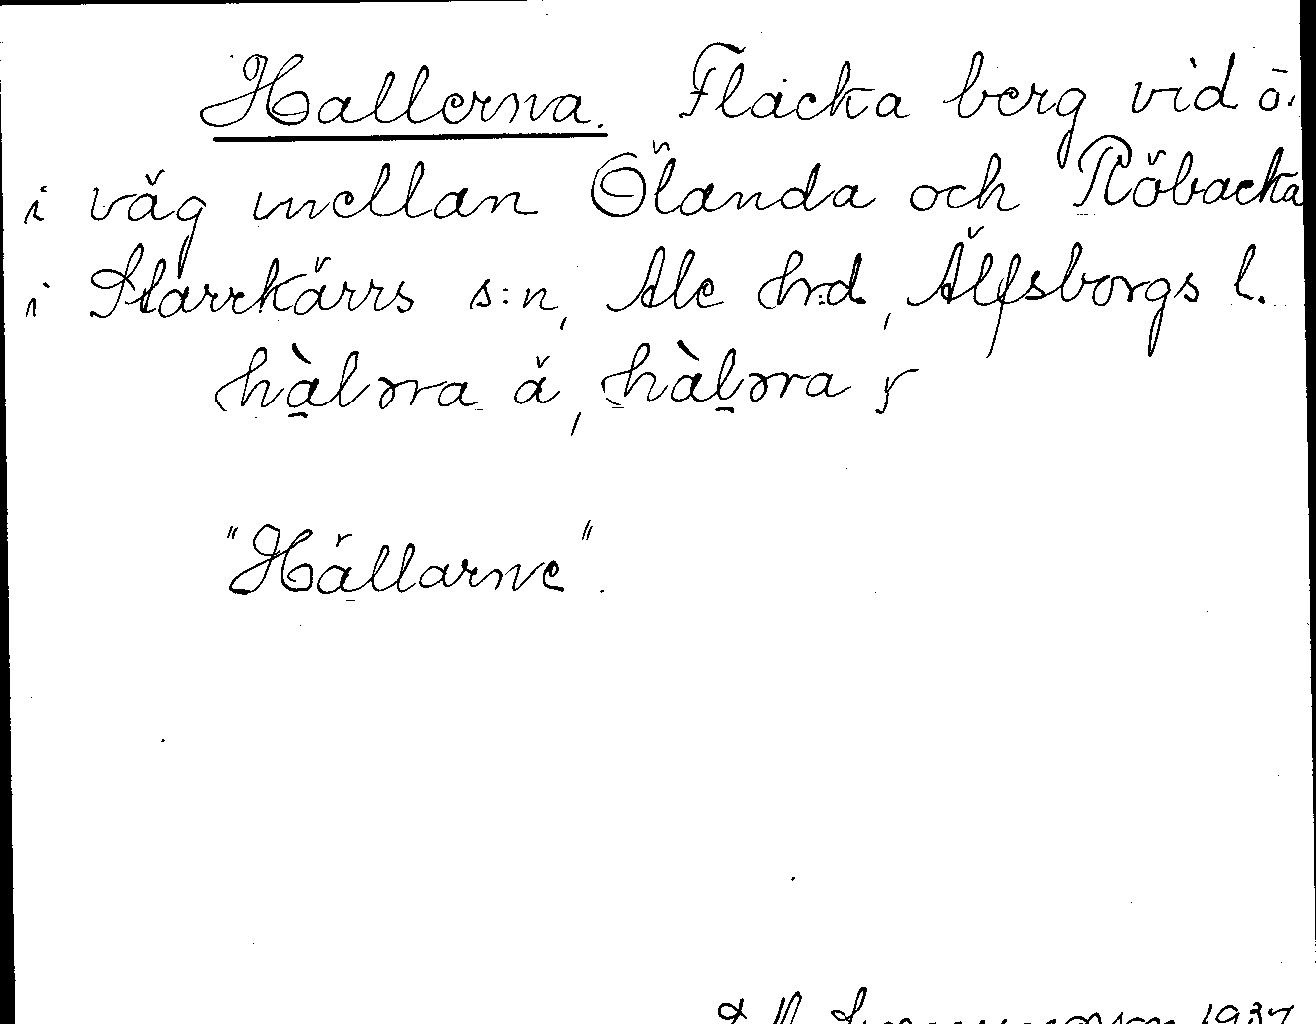 Hallerna. Flacka berg vid ö.
i väg mellan Ölanda och Röbacka
i Starrkärrs s:n, Ale hrd, Älfsborgs l.
hàlərra ä, hàlərra
"Hällarne".
1937